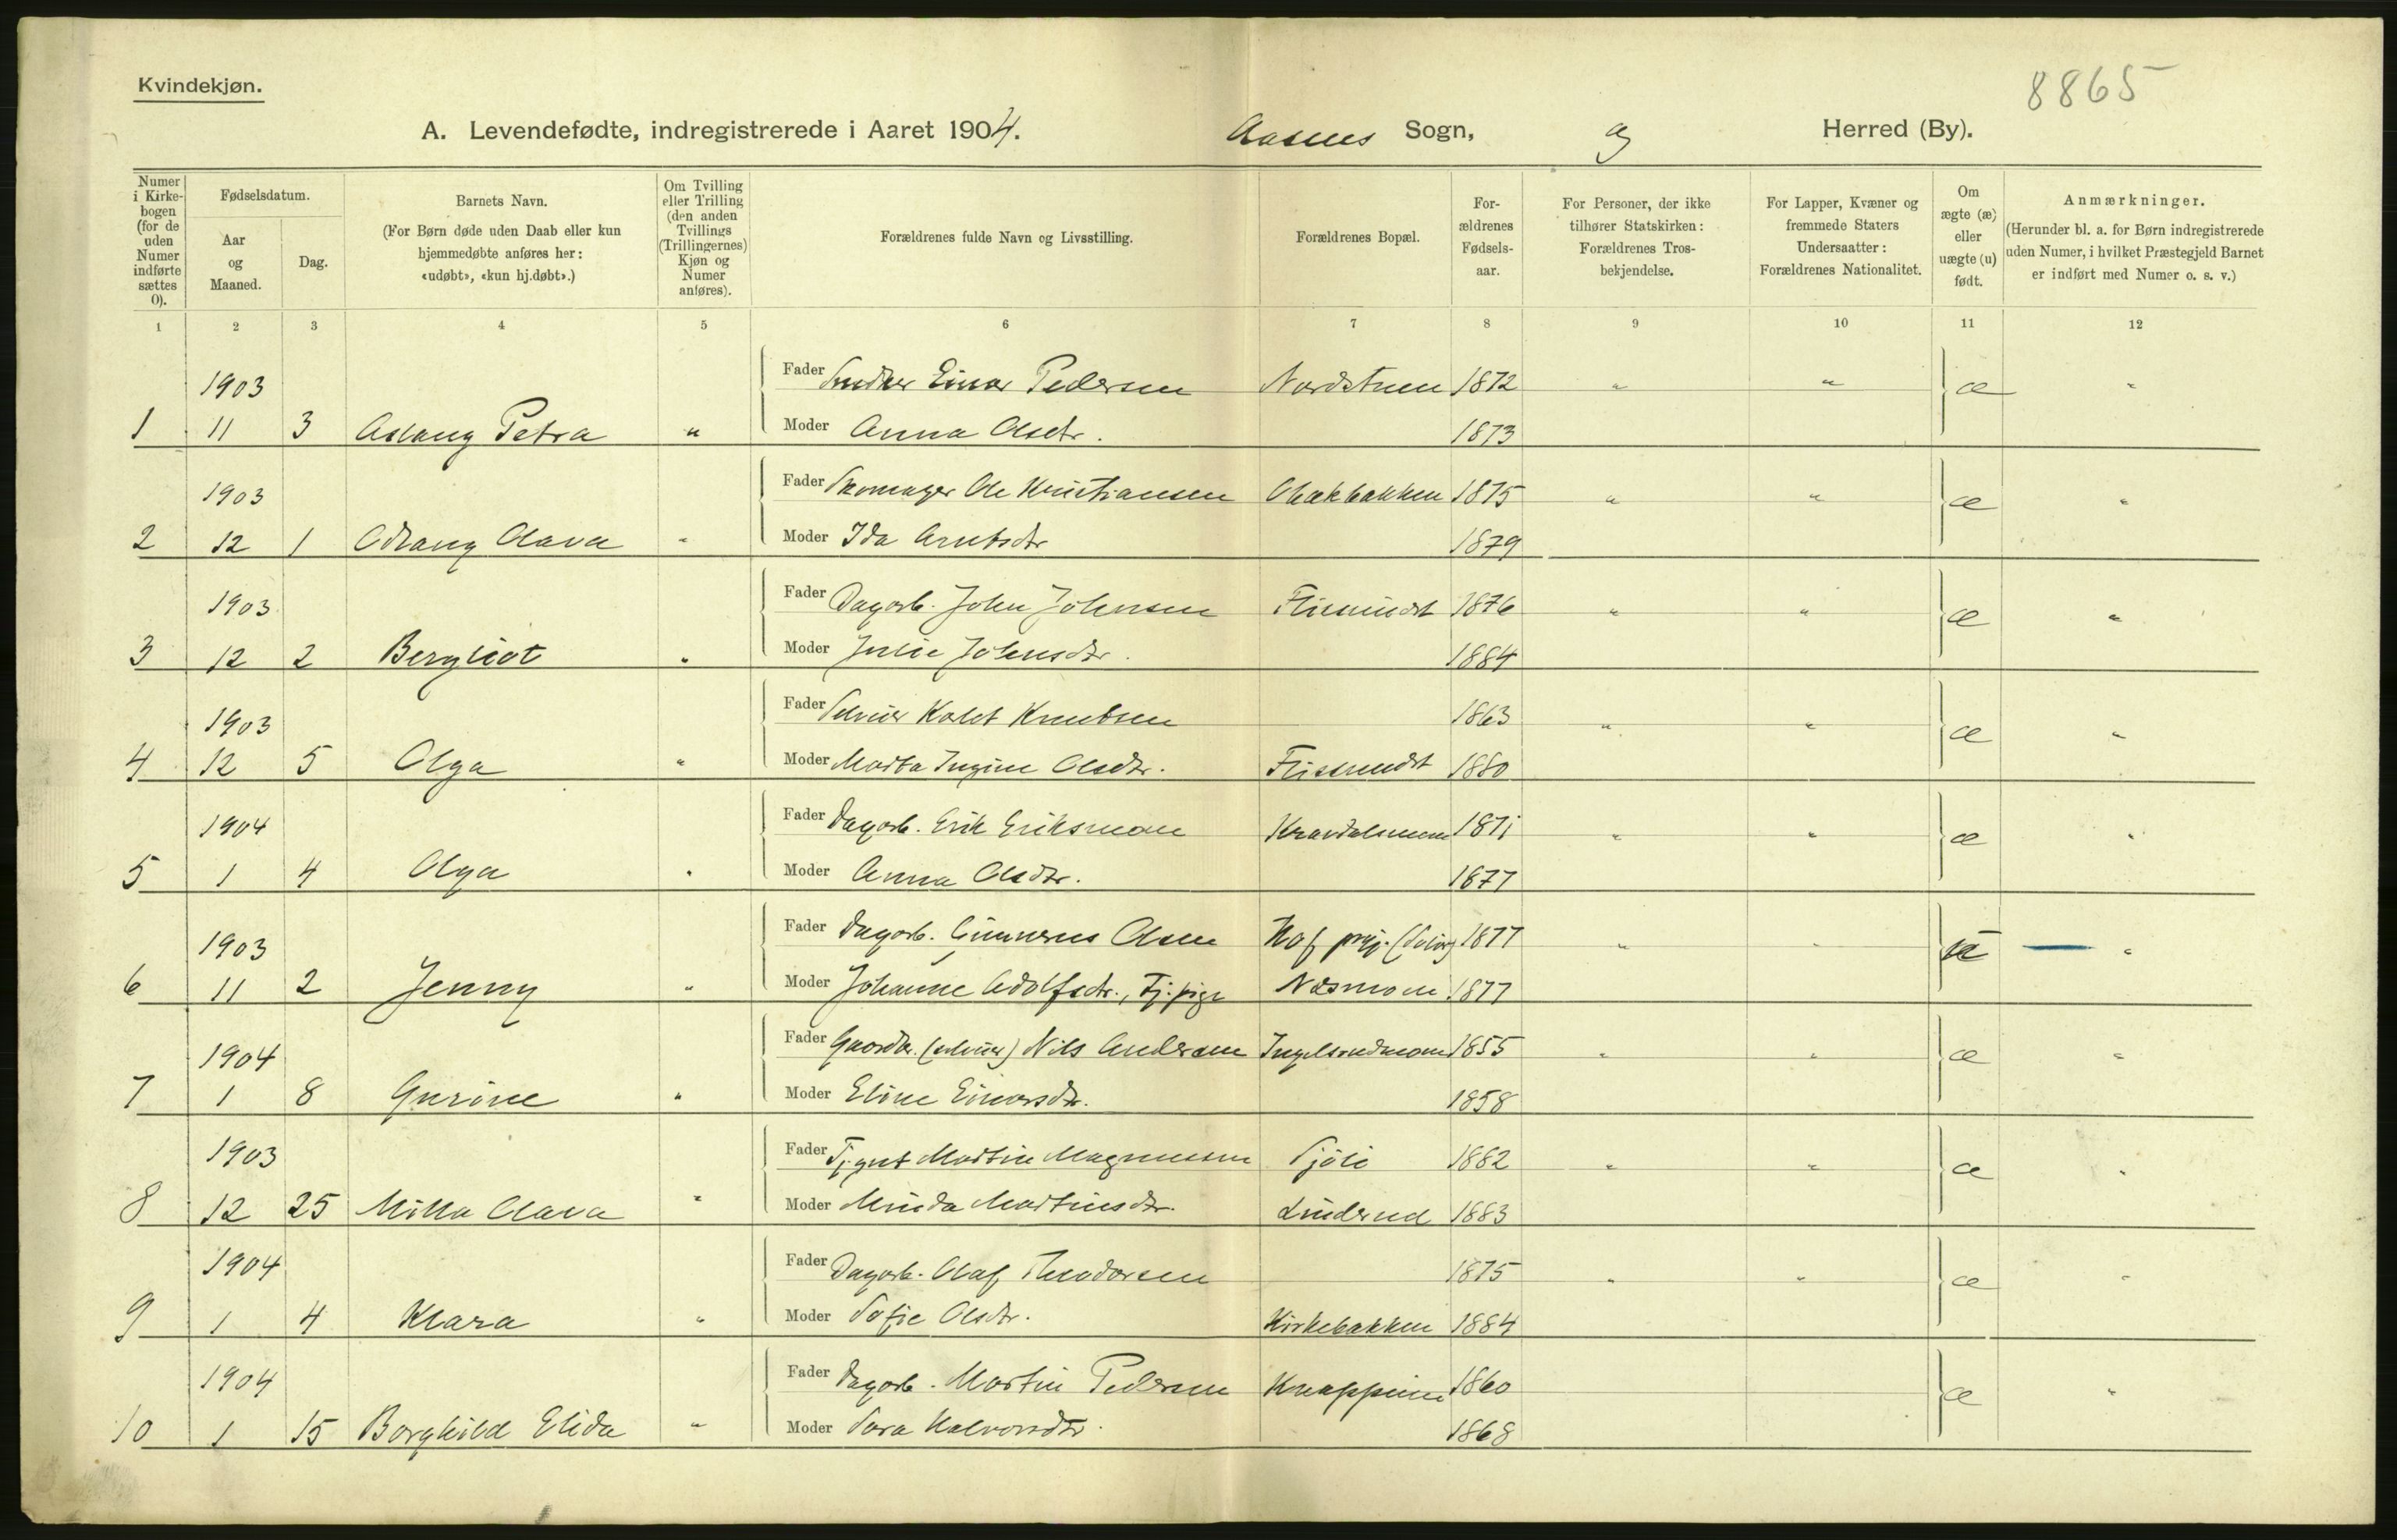 Kvindekjøn.
8865
A. Levendefødte, indregistrerede i Aaret 1904. Aasnes Sogn, og Herred (By).
Numer i Kirkebogen (for de uden Numer indførte sættes 0).
Fødselsdatum.
Aar og Maaned.
Dag.
Barnets Navn.
(For Børn døde uden Daab eller kun hjemmedøbte anføres her: «udøbt», «kun hj.døbt».)
Om Tvilling eller Trilling (den anden Tvillings (Trillingernes) Kjøn og Numer anføres).
Forældrenes fulde Navn og Livsstilling.
Forældrenes Bopæl.
Forældrenes Fødselsaar.
For Personer, der ikke tilhører Statskirken: Forældrenes Trosbekjendelse.
For Lapper, Kvæner og fremmede Staters Undersaatter: Forældrenes Nationalitet.
Om ægte (æ) eller uægte (u) født.
Anmærkninger.
(Herunder bl. a. for Børn indregistrerede uden Numer, i hvilket Præstegjeld Barnet er indført med Numer o. s. v.)
1 2 3 4 5 6 7 8 9 10 11 12
1903 Fader Snedker Einar Pedersen 1872 " " æ "
1 11 3 Aslaug Petra " Moder Anna Olsdtr. 1873
1903 Fader Skomager Ole Kristiansen 1875 " " æ "
2 12 1 Odlaug Clara " Moder Ida 1879
1903 Fader Dagarb. John Johnsen Flisundet 1876 " " æ "
3 12 2 Bergliot " Moder Julie Johnsdtr. 1884
1903 Fader Selveier Knutsen 1863 " " æ "
4 12 5 Olga " Moder Marta Ingine Olsdtr. Flisundet 1880
1904 Fader Dagarb. Erik Eriksmoen 1871 " " æ "
5 1 4 Olga " Moder Anna Olsdtr. 1877
1903 Fader Dagarb. Gunnerus Olsen Hof prgj. (Solør) 1877 " " æ — "
6 11 2 Jenny " Moder Johanne Adolfsdtr., Tj.pige Næsmoen 1877
1904 Fader Gaardbr. (selveier) Nils Andersen Ingelsrudmoen 1855 " " æ "
7 1 8 Gurine " Moder Eline Einarsdtr. 1858
1903 Fader Tj.gut Martin Magnussen Sjøli 1882 " " æ "
8 12 25 Milla Clara " Moder Minda Martinsdtr. Linderud 1883
1904 Fader Dagarb. Olaf Theodorsen 1875 " " æ "
9 1 4 Klara " Moder Sofie Olsdtr. Kirkebakken 1884
1904 Fader Dagarb. Martin Pedersen 1860 æ "
10 1 15 Borghild Elida " Moder Sara Halvorsdtr. 1868